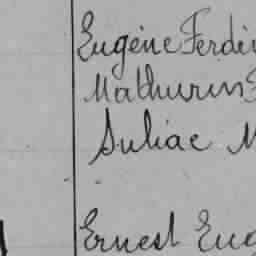 Eugène Ferdin
Mathurin F
Suliac M
Ernest Eug